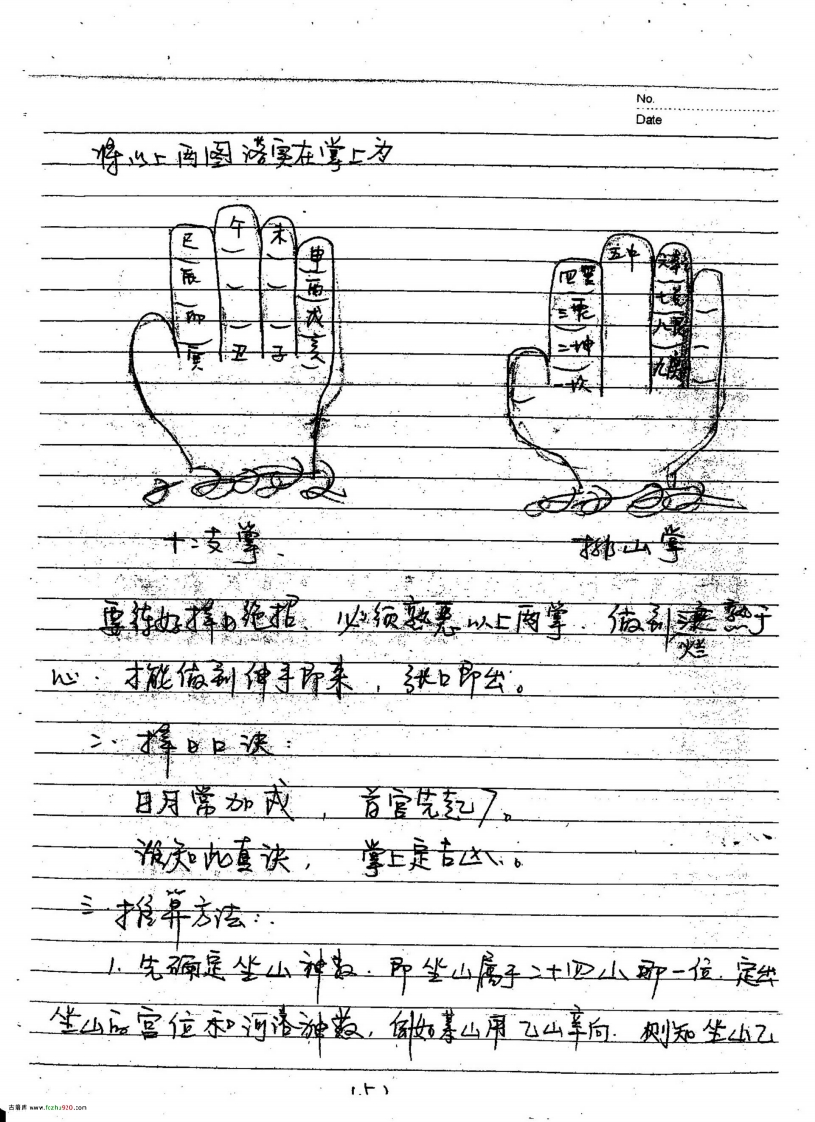 No.
Date
将以上两图落实在掌上为
巳 午 未 申
辰 酉
卯 戌
寅 丑 子 亥
四巽 五中 六乾
三震 七兑
二坤 八艮
一坎 九離
十二支掌.
排山掌
要练好择日绝招. 必须熟悉以上两掌. 做到滚烂熟于
心. 才能做到伸手即来, 张口即出。
二. 择日口诀:
日月常加戌, 首宫先起7。
谁知此真诀, 掌上定吉凶。
三. 推算方法:
1. 先确定坐山神数. 即坐山属于二十四山那一位. 定出
坐山的宫位和河洛神数, 例如某山用乙山辛向. 则知坐山乙
(5)
古易库 www.fczhj920.com